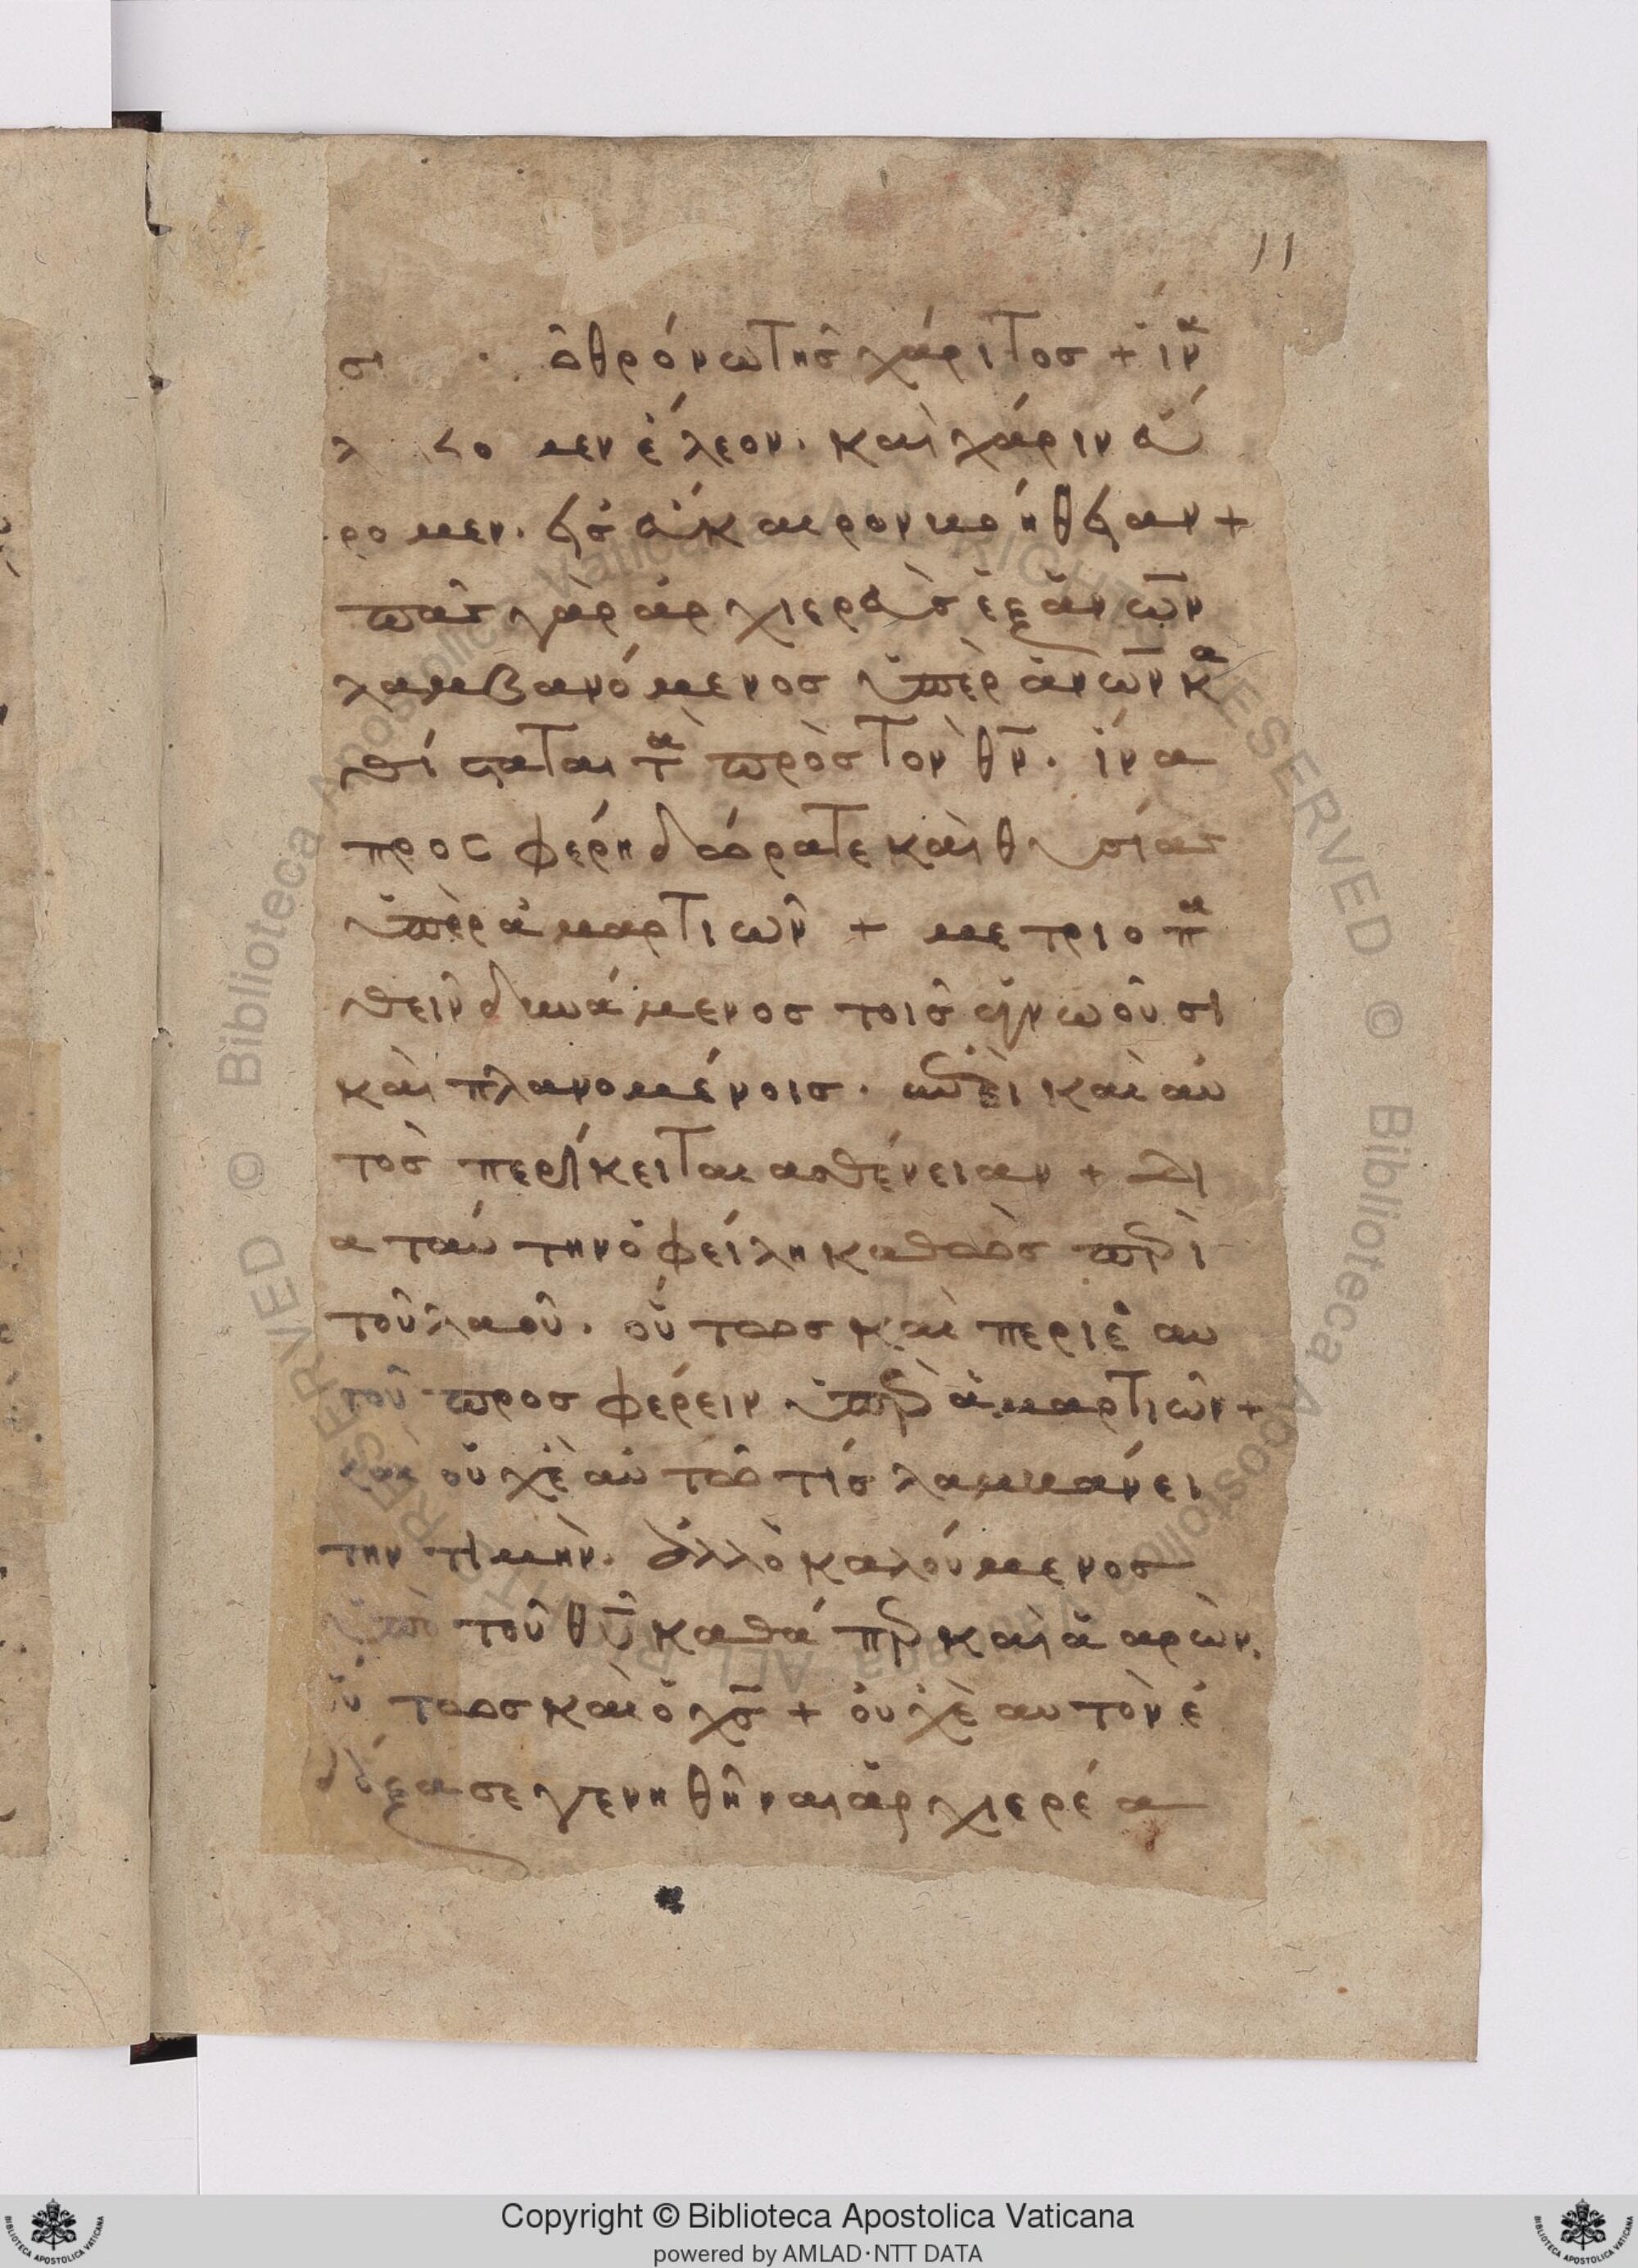 11
σι ῶ θρόνω τῆς χάριτος + ἵνα
λ βο μεν ἔλεον. καὶ χάριν εὕ
ρομεν. εἰς εὔκαιρον βοήθειαν +
πᾶς γὰρ ἀρχιερεὺς ἐξ ἀνῶν
λαμβανόμενος ὑπὲρ ἀνῶν κα
θίσταται τὰ πρὸς τὸν θν̄. ἵνα
προσφέρη δῶρα τε καὶ θυσίας
ὑπὲρ ἁμαρτιῶν + μετριοπα
θεῖν δυνάμενος τοῖς ἀγνωοῦσι
καὶ πλανομένοις. ἐπεὶ καὶ αὐ
τὸς περίκειται ασθένειαν + δι
α ταύτην ὀφείλη καθὼς περὶ
τοῦ λαοῦ. οὕτως καὶ περὶ ἑαυ
τοῦ προσφέρειν ὑπὲρ ἁμαρτιῶν +
καὶ οὐχ ἑαὐτῶ τίς λαμβάνει
την τιμὴν. ἀλλ ὁ καλούμενος
ὑπὸ τοῦ θῡ καθάπερ καὶ ἀαρὼν.
οὕτως καὶ ὁ χς̄ + οὐχ ἑαυτὸν ἐ
δόξασε γενηθῆναι ἀρχιερέα
Copyright © Biblioteca Apostolica Vaticana
powered by AMLAD·NTT DATA